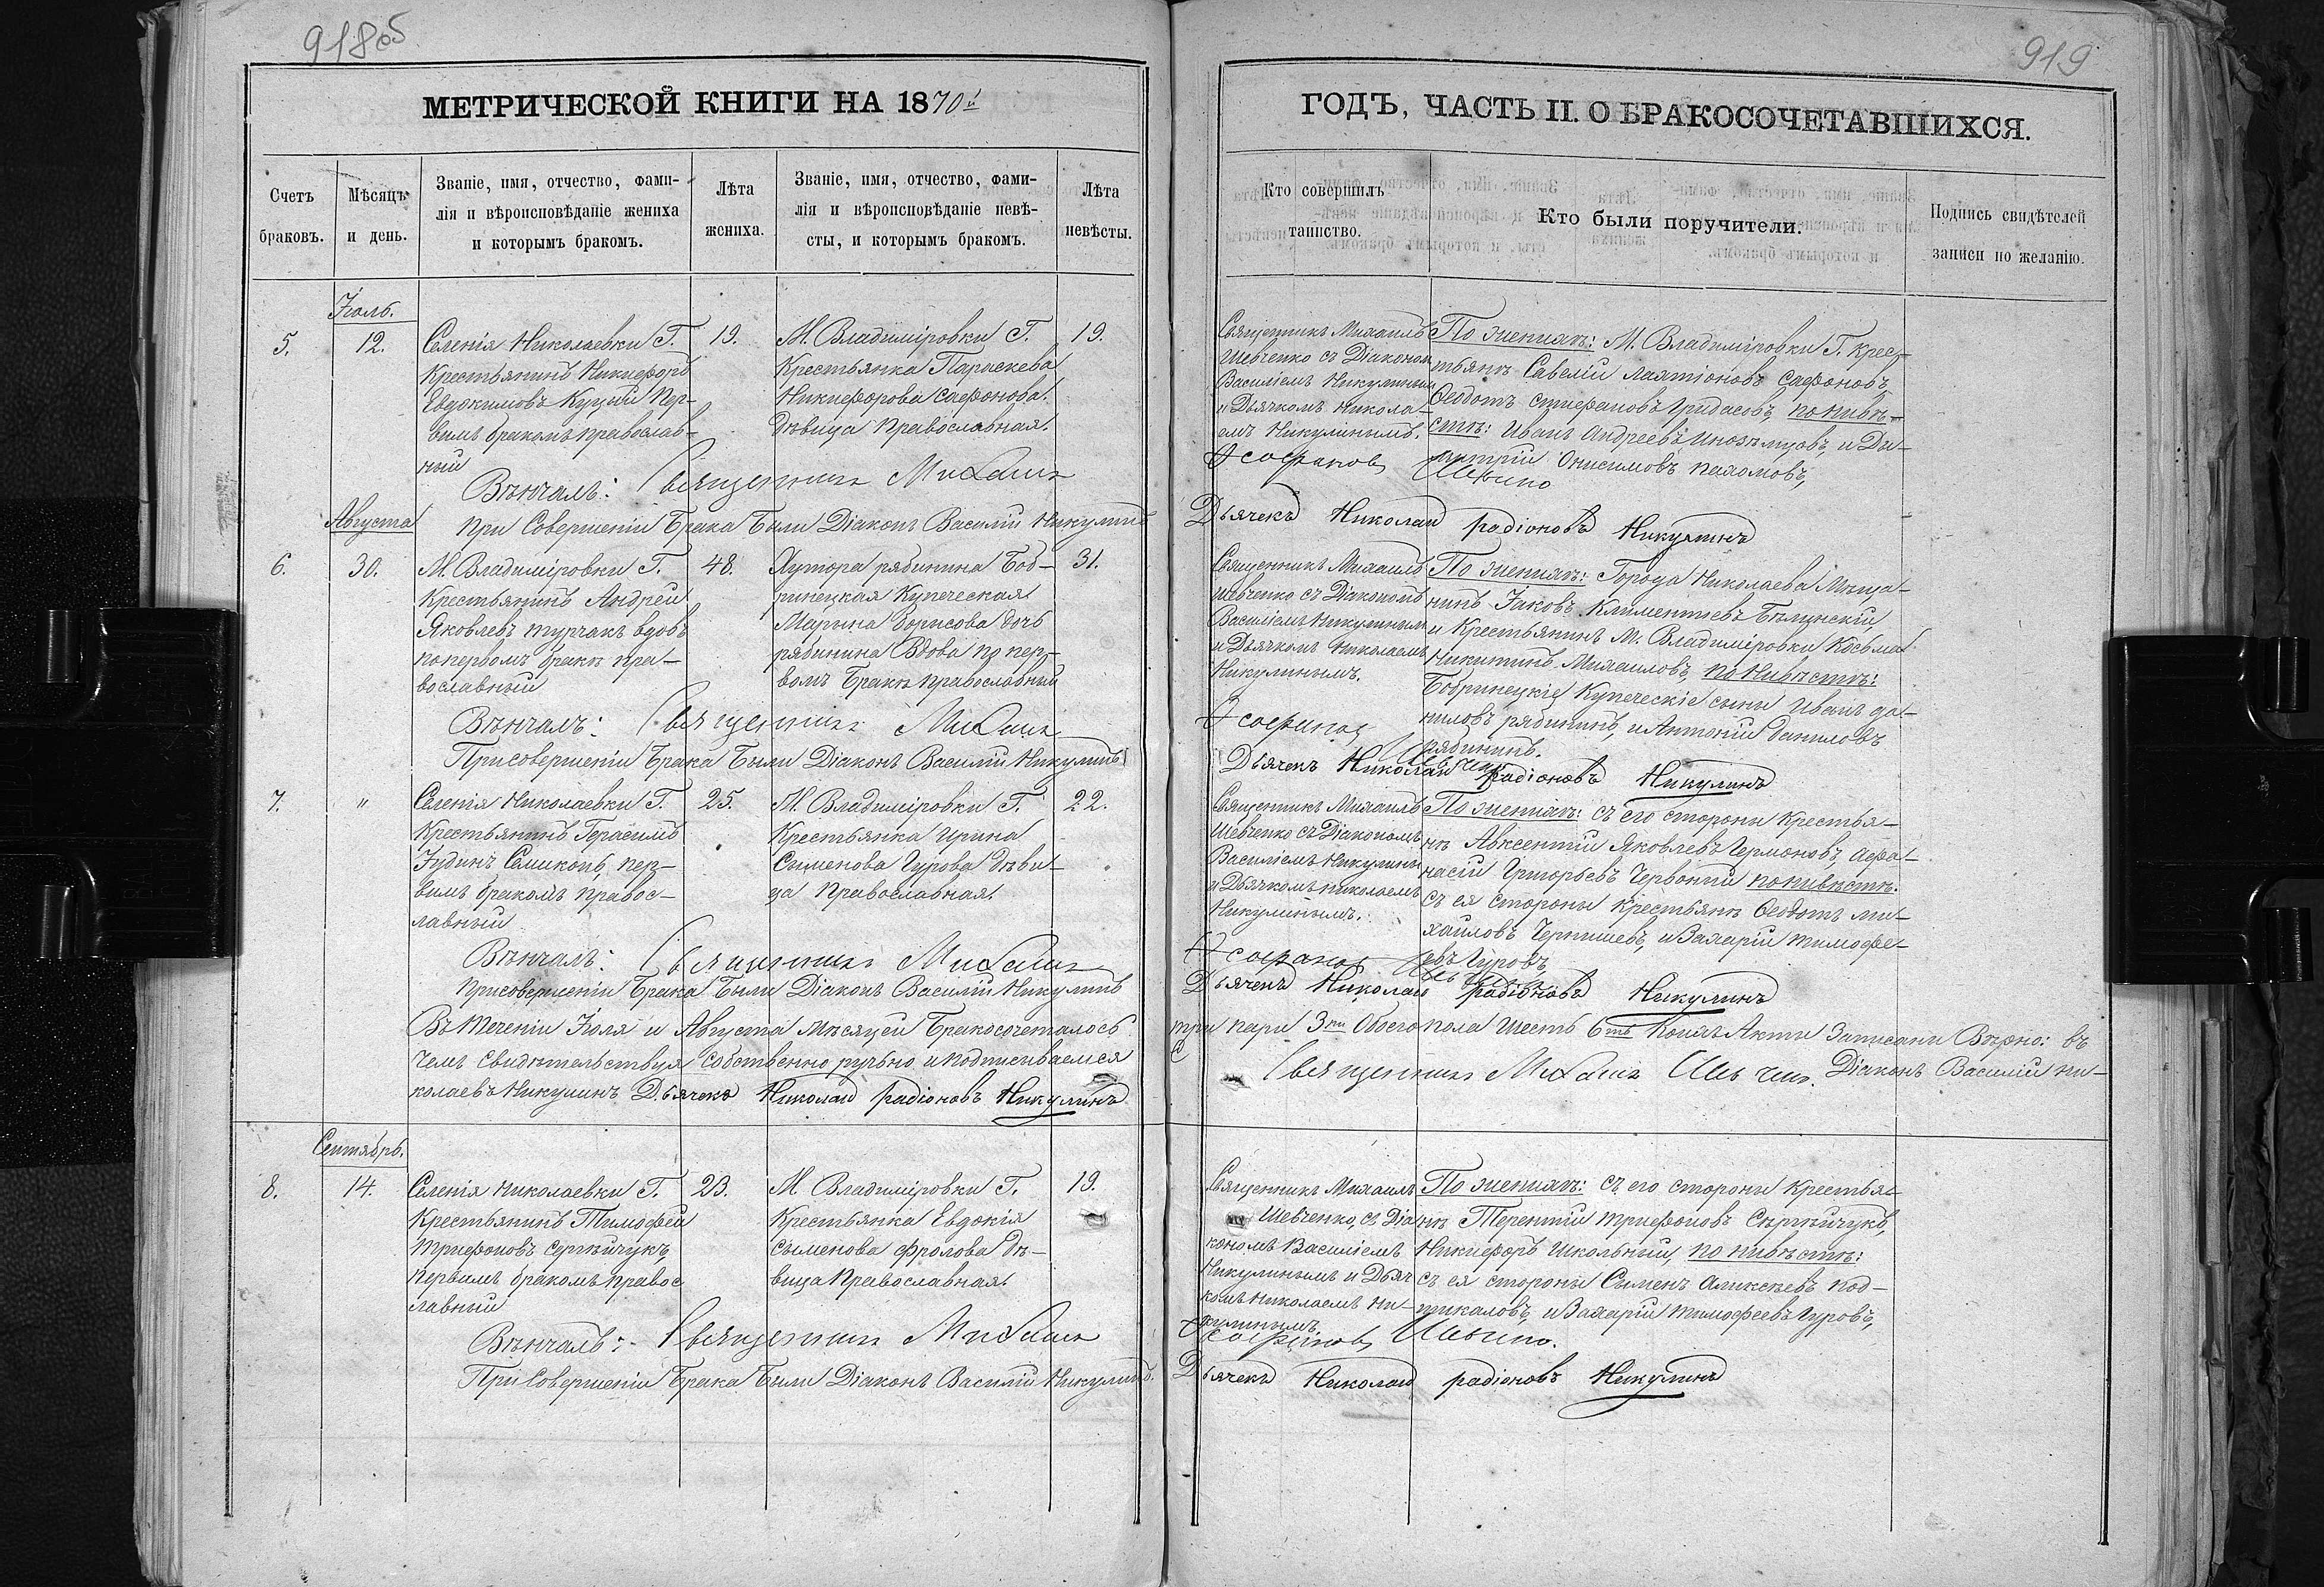 918об
919
МЕТРИЧЕСКОЙ КНИГИ НА 1870й
ГОДЪ, ЧАСТЬ II. О БРАКОСОЧЕТАВШИХСЯ.
Счетъ браковъ.
Мѣсяцъ и день.
Званіе, имя, отчество, фами-
лія и вѣроисповѣданіе жениха
и которымъ бракомъ.
Лѣта жениха.
Званіе, имя, отчество, фами-
лія и вѣроисповѣданіе невѣ-
сты, и которымъ бракомъ.
Лѣта невѣсты.
Кто совершилъ таинство.
Кто были поручители.
Подпись свидѣтелей
записи по желанію.
Іюль.
5.
12.
Селенія Николаевки Г.
Крестьянинъ Никифоръ
Евдокимовъ Куций Пер-
вымъ бракомъ православ-
ный
19.
М. Владиміровки Г.
Крестьянка Параскева
Никифорова Сафонова
дѣвица Православная.
19.
Священникъ Михаилъ
Шевченко съ Діакономъ
Василіемъ Никулинымъ
и Дьячкомъ Никола-
емъ Никулинымъ.
По женихѣ: М. Владиміровки Г. крес-
тьяне Савелій Лаятіоновъ Сафоновъ,
Ѳеодотъ Стефановъ Гридасовъ, по нивѣ-
стѣ: Иванъ Андреевъ Иноземцовъ, и Ди-
митрій Онисимовъ Пахомовъ,
Вѣнчалъ: Священникъ Михаилъ
При Совершеніи Брака Были Діаконъ Василій Никулинъ
Дьячекъ Николай радіоновъ Никулинъ
Августа
6.
30.
М. Владиміровки Г.
Крестьянинъ Андрей
Яковлевъ Турчакъ вдовъ
по первомъ бракѣ пра-
вославный
48.
Хутора рябинина Боб-
ринецкая Купеческая
Марина Борисова дочь
рябинина Вдова по пер-
вомъ Бракѣ православный
31.
Священникъ Михаилъ
Шевченко съ Діакономъ
Василіемъ Никулинымъ
и Дьячкомъ Николаемъ
Никулинымъ.
По женихѣ: Города Николаева Мѣща-
нинъ Іаковъ Климентіевъ Бѣлинскій,
и Крестьянинъ М. Владиміровки Косьма
Никитинъ Михаиловъ, по Нивѣстѣ:
Бобринецкіе Купеческіе сыны Иванъ да-
ниловъ рябининъ, и Антоній Даниловъ
рябининъ.
Вѣнчалъ: Священникъ Михаилъ
При совершеніи Брака Были Діаконъ Василій Никулинъ
Дьячекъ Николай радіоновъ Никулинъ
7.
"
Селенія Николаевки Г.
Крестьянинъ Герасимъ
Іудинъ Семиконь, пер-
вымъ бракомъ правос-
лавный
25.
М. Владиміровки Г.
Крестьянка Ирина
Сыменова Гурова дѣви-
ца Православная.
22.
Священникъ Михаилъ
Шевченко съ Діакономъ
Василіемъ Никулинымъ
и Дьячкомъ Николаемъ
Никулинымъ.
По женихѣ: съ его стороны Крестья-
не Авксентій Яковлевъ Чермоновъ, Афа-
насій Григорьевъ Червоный по нивѣстѣ:
съ ея стороны Крестьяне Ѳеодотъ ми-
хайловъ Чернишевъ, и Захарій тимофе-
евъ Гуровъ,
Вѣнчалъ: Священникъ Михаилъ
При совершеніи Брака Были Діаконъ Василій Никулинъ
Дьячекъ Николай радіоновъ Никулинъ
Въ теченіи Іюля и Августа Мѣсяцей Бракосочеталось три пари 3ри Обоего пола Шесть 6ть Коихъ Акты Записани Вѣрно: въ
чемъ свидѣтельствуя собственно ручьно и подписиваемся Священникъ Михаилъ Діаконъ Василій ни-
колаевъ Никулинъ Дьячекъ Николай радіоновъ Никулинъ
Сентябрь.
8.
14.
Селенія Николаевки Г.
Крестьянинъ Тимофей
Трифоновъ Сергѣйчукъ,
первымъ бракомъ правос
лавный
23.
М. Владиміровки Г.
Крестьянка Евдокія
Сыменова Фролова дѣ-
вица Православная.
19.
Священникъ Михаилъ
Шевченко, съ Діа
кономъ Василіемъ
Никулинымъ и Дьяч
комъ Николаемъ Ни-
кулинымъ
По женихѣ: съ его стороны Крестья-
не Терентій Трифоновъ Сергѣйчукъ,
Никифоръ Школьный, по нивѣстѣ:
съ ея стороны Сыменъ Алексѣевъ Под-
пикаловъ, и Захарій Тимофеевъ Гуровъ,
Вѣнчалъ: Священникъ Михаилъ
При Совершеніи Брака Были Діаконъ Василій Никулинъ.
Дьячекъ Николай радіоновъ Никулинъ